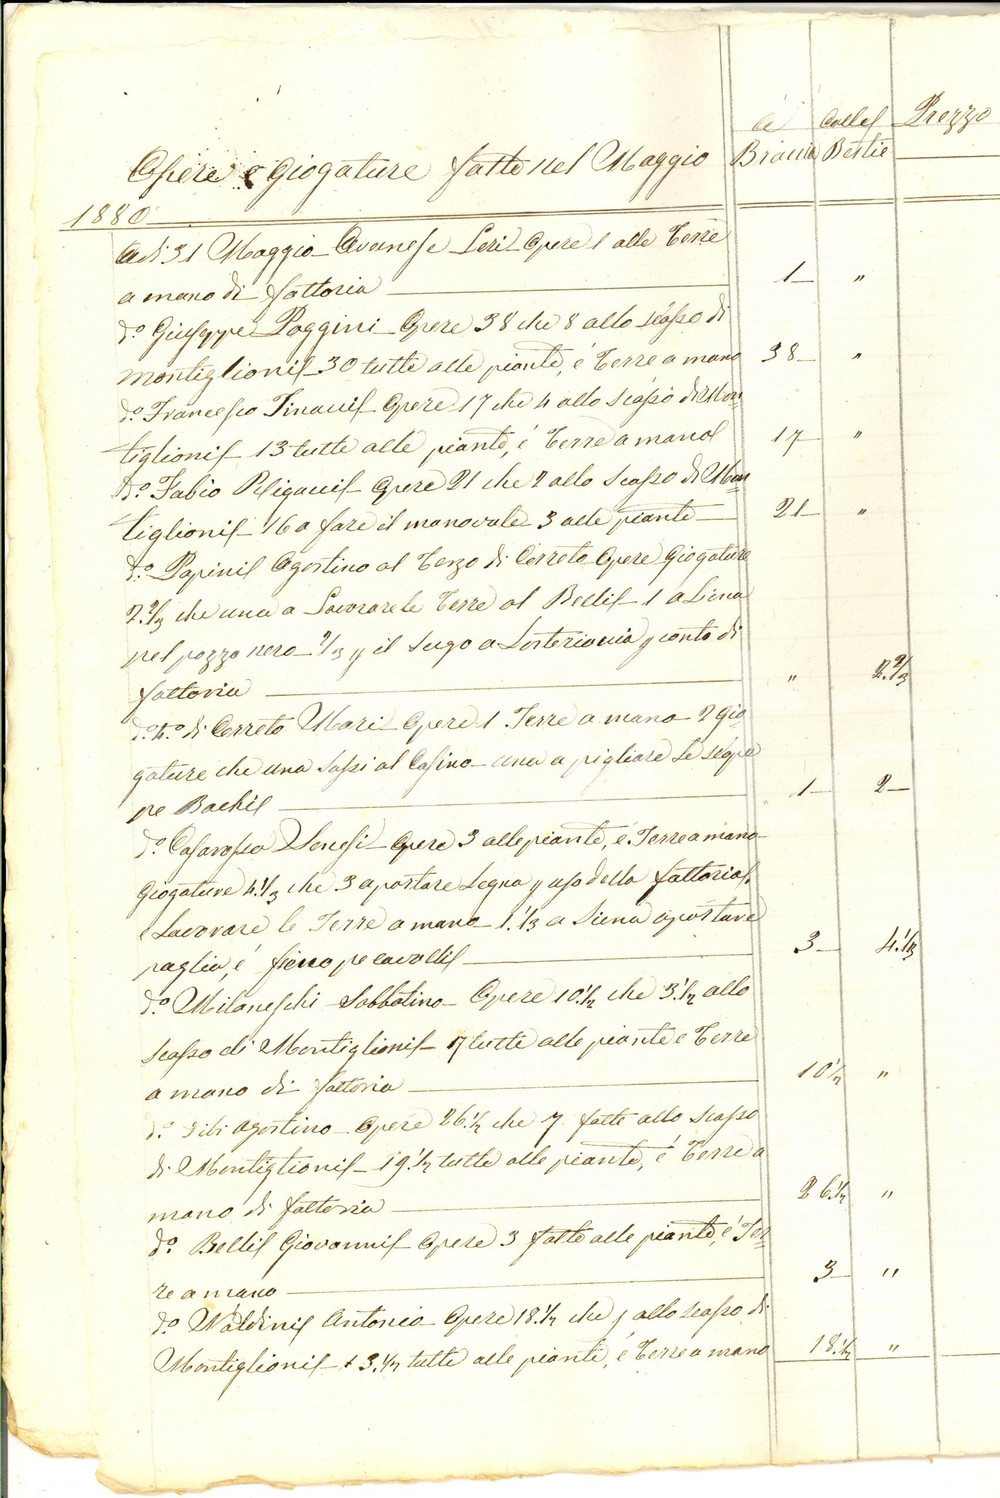 a colle Prezzo
Opere e Giogature fatte nel Maggio Braccia Bestie
1880
Adi 31 Maggio Avanese Leri Opere 1 alle Terre
a mano di fattoria 1 "
do. Giuseppe Poggini Opere 38 che 8 allo scasso di
Montiglioni 30 tutte alle piante, é Terre a mano 38 "
do. Francesco Tinacci Opere 17 che 4 allo scasso di Mon
tiglioni 13 tutte alle piante, é Terre a mano 17 "
do. Fabio Peligacci Opere 21 che 2 allo scasso di Mon
tiglioni 16 a fare il manovale 3 alle piante 21 "
do. Papini Agostino al Terzo di Cerreto Opere Giogature
2.2/3 che una a Lavorare le Terre al Belli 1 a Siena
pel pozzo nero 2/3 p il sugo a p conto di
fattoria " 2.2/3
do. 4o. di Cerreto Mari Opere 1 Terre a mano 2 Gio
gature che una sassi al Casino una a pigliare le siepe
pe Bachi 1 2
do. Casarosso Senesi Opere 3 alle piante, é Terre a mano
Giogature 4.1/3 che 3 a portare Legna p uso della fattoria
e Lavorare le Terre a mano 1.1/3 a Siena a portare
paglia, é fieno pe cavalli 3 4.1/3
do. Milaneschi Sabbatino Opere 10.1/2 che 3.1/2 allo
scasso di Montiglioni 7 tutte alle piante e Terre
a mano di fattoria 10 1/2 "
do. Agostino Opere 26.1/2 che 7 fatte allo scasso
di Montiglioni 19.1/2 tutte alle piante, é Terre a
mano di fattoria 26.1/2 "
do. Belli Giovanni Opere 3 fatte alle piante, é Ter
re a mano 3 "
do. Naldini Antonio Opere 18.1/2 che 5 allo scasso di
Montiglioni 13.1/2 tutte alle piante, é Terre a mano 18.1/2 "